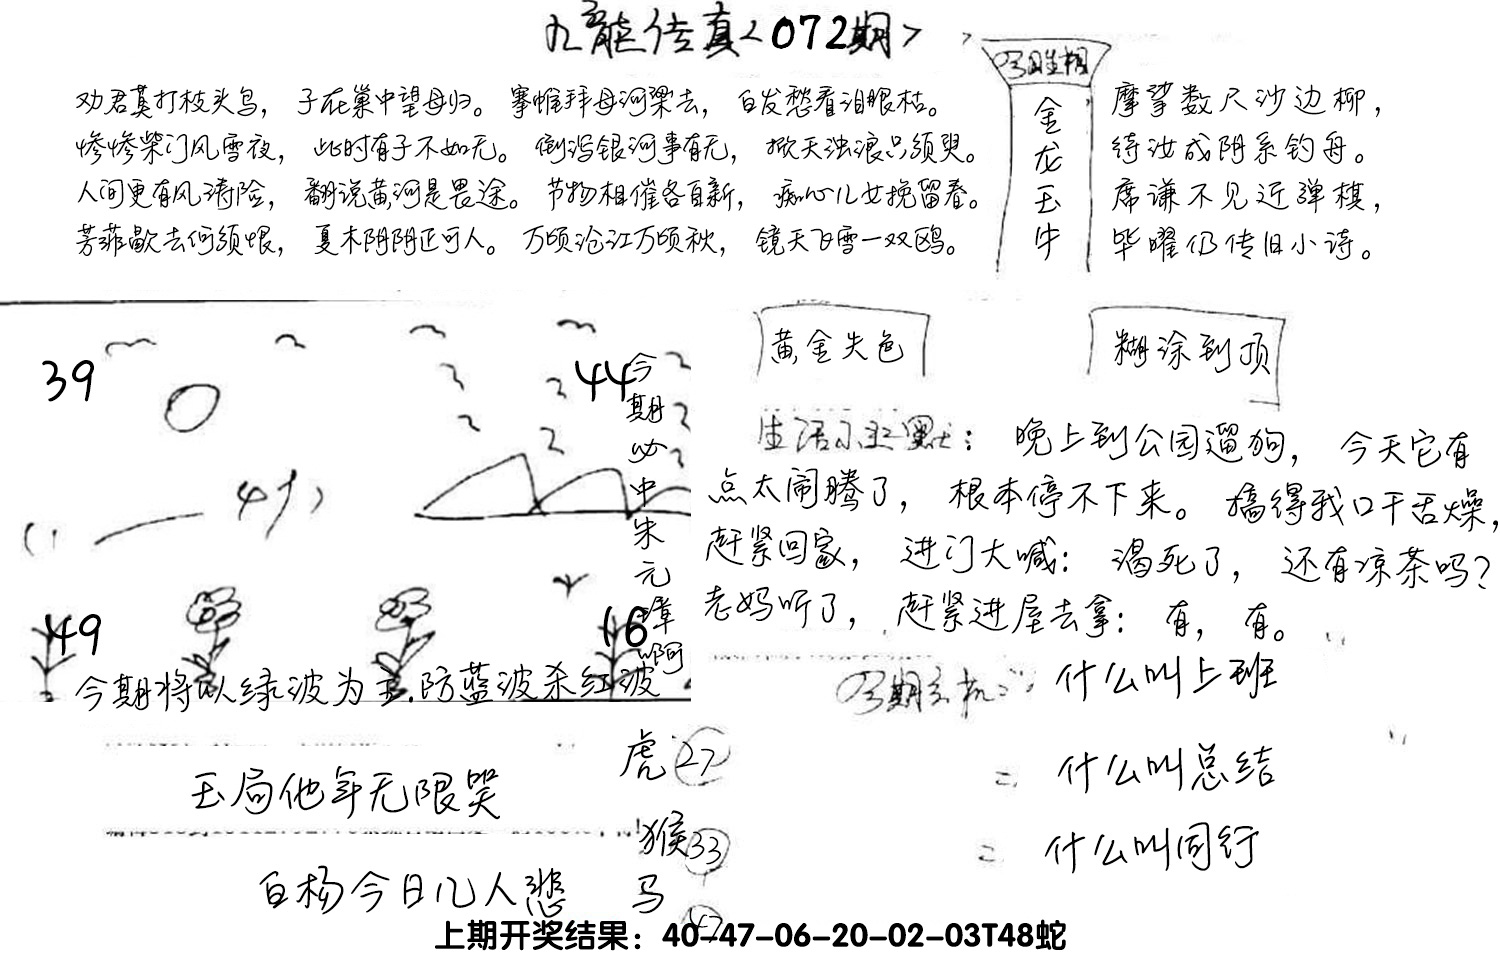 九龍传真<072期>
劝君莫打枝头鸟，子在巢中望母归。搴帷拜母河梁去，白发愁看泪眼枯。
惨惨柴门风雪夜，此时有子不如无。倒泻银河事有无，掀天浊浪只须臾。
人间更有风涛险，翻说黄河是畏途。节物相催各自新，痴心儿女挽留春。
芳菲歇去何须恨，夏木阴阴正可人。万顷沧江万顷秋，镜天飞雪一双鸥。
金龙玉牛
摩挲数尺沙边柳，
待汝成阴系钓舟。
席谦不见近弹棋，
毕曜仍传旧小诗。
39
44
49
16
今期必中朱元璋啊
今期将以绿波为主.防蓝波杀红波
黄金失色
糊涂到顶
生活幽默：晚上到公园遛狗，今天它有
点太闹腾了，根本停不下来。搞得我口干舌燥，
赶紧回家，进门大喊：渴死了，还有凉茶吗？
老妈听了，赶紧进屋去拿：有，有。
什么叫上班
什么叫总结
什么叫同行
玉局他年无限哭
白杨今日几人悲
虎 27
猴 33
马 47
上期开奖结果：40-47-06-20-02-03T48蛇